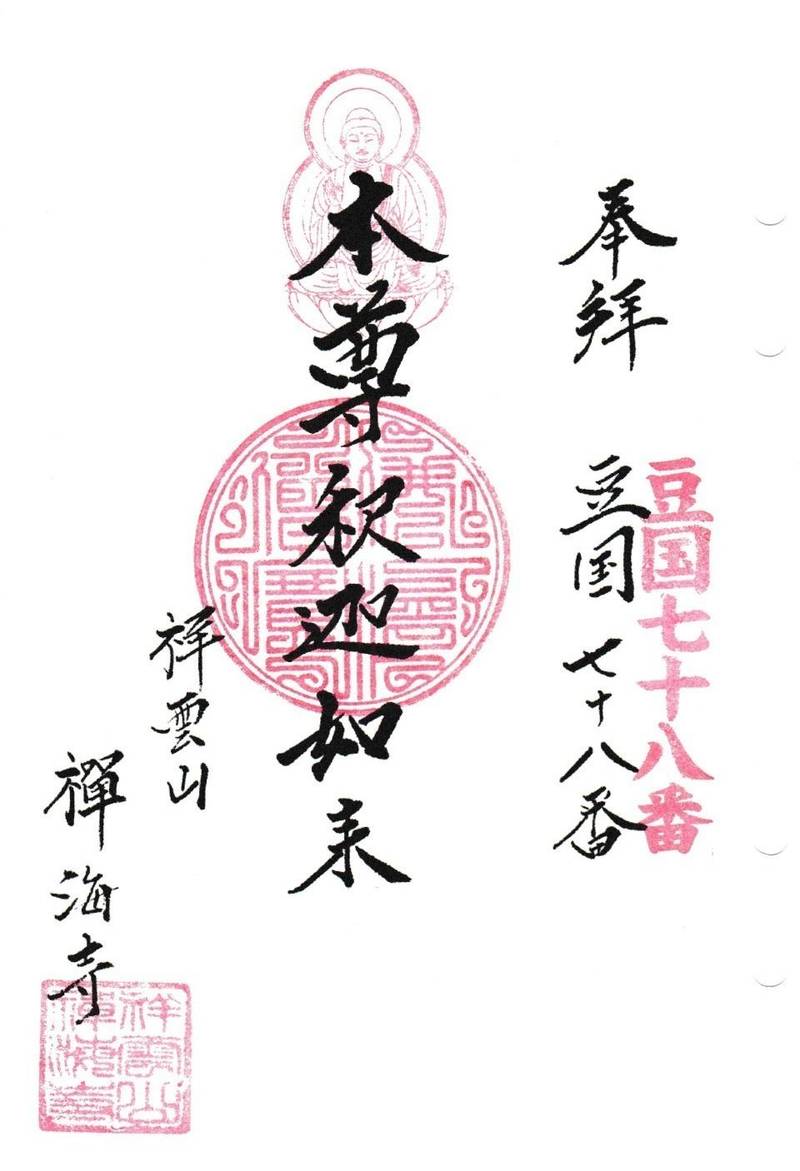 奉拝
豆国七十八番
豆国七十八番
本尊釈迦如来
祥雲山
禪海寺
祥雲山
禪海寺